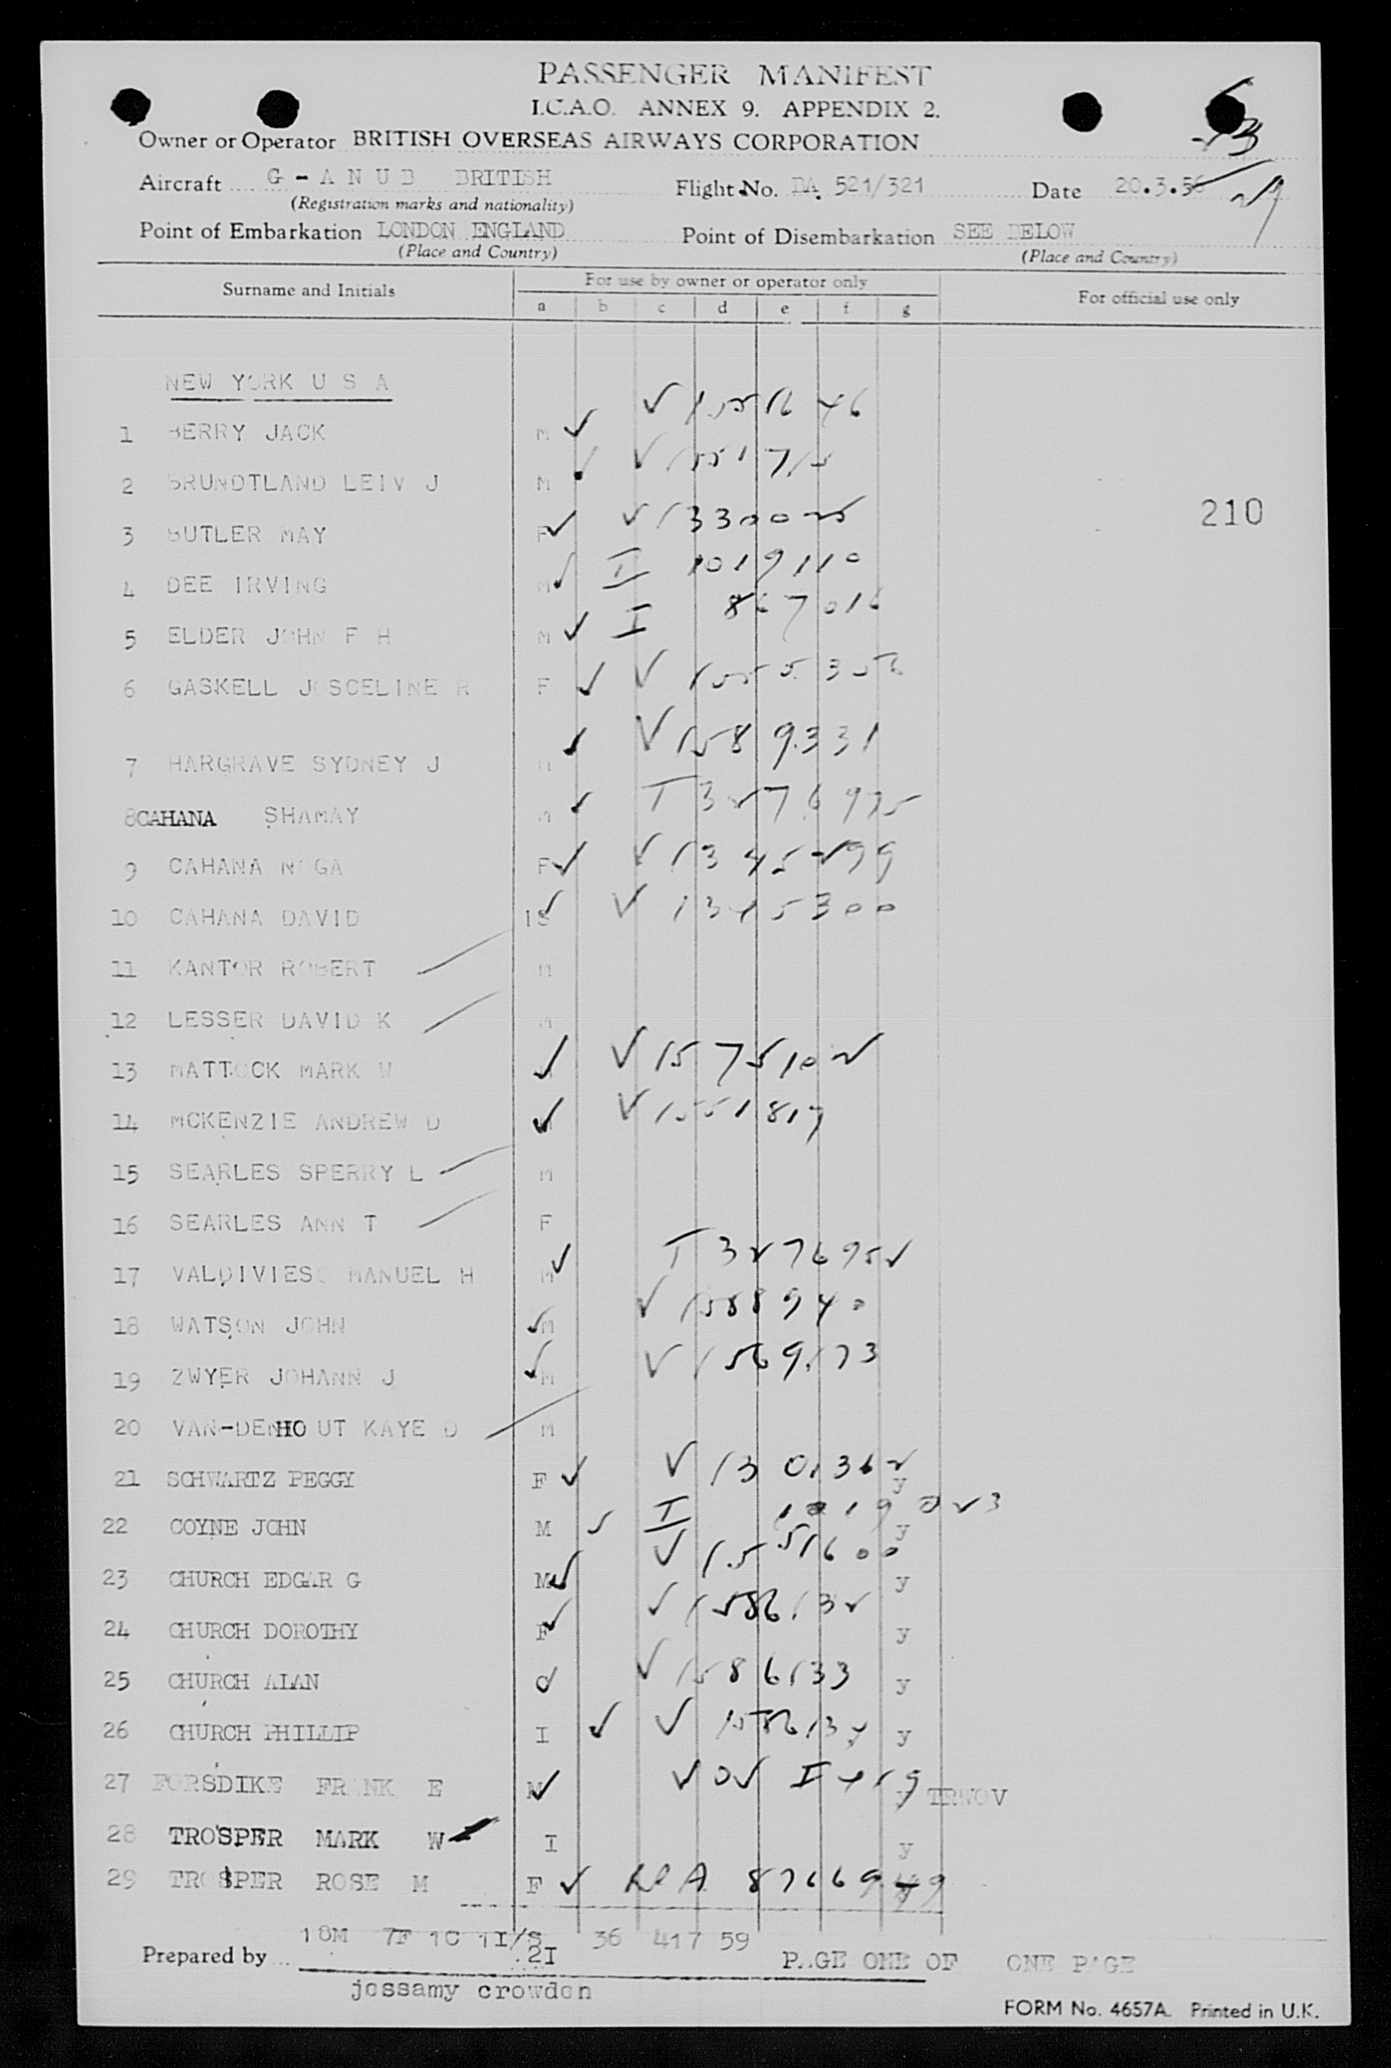 PASSENGER MANIFEST
I.C.A.O. ANNEX 9. APPENDIX 2.
Owner or Operator BRITISH OVERSEAS AIRWAYS CORPORATION
Aircraft G - A N U B BRITISH Flight No. BA. 521/321 Date 20.3.56
(Registration marks and nationality)
Point of Embarkation LONDON ENGLAND Point of Disembarkation SEE BELOW
(Place and Country) (Place and Country)
Surname and Initials For use by owner or operator only For official use only
a b c d e f g
NEW YORK U S A
1 BERRY JACK M ✓ ✓
2 BRUNDTLAND LEIV J M ✓ V 1551715
210
3 BUTLER MAY F ✓ V 1330025
4 DEE IRVING M ✓ I 1019110
5 ELDER JOHN F H M ✓ I 867016
6 GASKELL JOSCELINE R F ✓ V 1555356
7 HARGRAVE SYDNEY J M ✓ V 1589331
8 CAHANA SHAMAY M ✓ T 3276975
9 CAHANA NOGA F ✓ V 1345299
10 CAHANA DAVID IS ✓ V 1345300
11 KANTOR ROBERT M
12 LESSER DAVID K M
13 MATTOCK MARK W ✓ V 1575102
14 MCKENZIE ANDREW D ✓ V 1551817
15 SEARLES SPERRY L M
16 SEARLES ANN T F
17 VALDIVIESO MANUEL H M ✓ T 3276952
18 WATSON JOHN M ✓ V 1588940
19 ZWYER JOHANN J M ✓ V 1569173
20 VAN-DENHOUT KAYE D M
21 SCHWARTZ PEGGY F ✓ V 1301362 y
22 COYNE JOHN M ✓ I 1019023 y
23 CHURCH EDGAR G M ✓ V 1551600 y
24 CHURCH DOROTHY F ✓ V 1586132 y
25 CHURCH ALAN V 1586133 y
26 CHURCH PHILLIP I ✓ V 1586134 y
27 FORSDIKE FRANK E M ✓ I 419 y
28 TROSPER MARK W I y
29 TROSPER ROSE M F ✓
18M 7F 1C 1I/S 36 417 59
Prepared by 2I PAGE ONE OF ONE PAGE
jossamy crowdon
FORM No. 4657A. Printed in U.K.